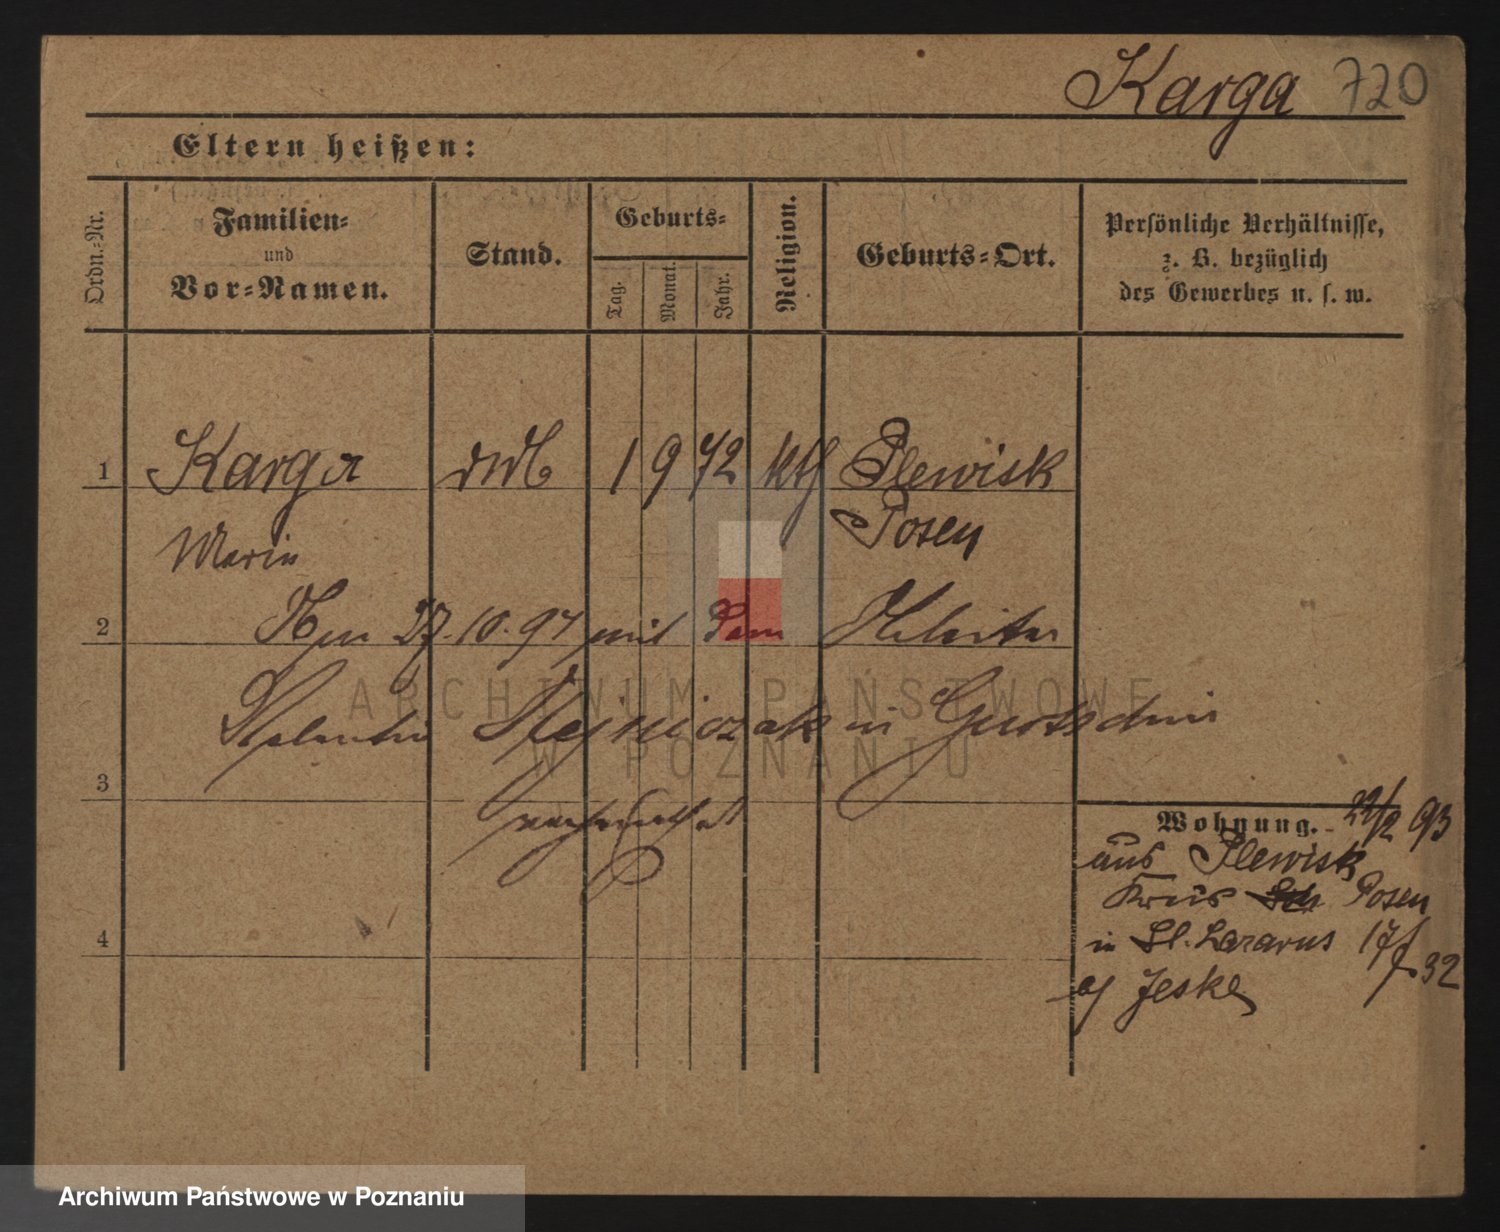 Karga 720
Eltern heißen:
Ordn.-Nr.
Familien-
und
Vor-Namen.
Stand.
Geburts-
Tag.
Monat.
Jahr.
Religion.
Geburts-Ort.
Persönliche Verhältnisse,
z. B. bezüglich
des Gewerbes u. s. w.
1 Karga 1 9 72 kth Plewisk
Marie Posen
2 Am 27. 10. 97 mit dem Arbeiter
ARCHIWUM PAŃSTWOWE
Valentin in Gurtschin
W POZNANIU
3
verheirathet
Wohnung. 22/2 93
aus Plewisk
Kreis Posen
in St. Lazarus 17
b/ Jeske 32
4
Archiwum Państwowe w Poznaniu